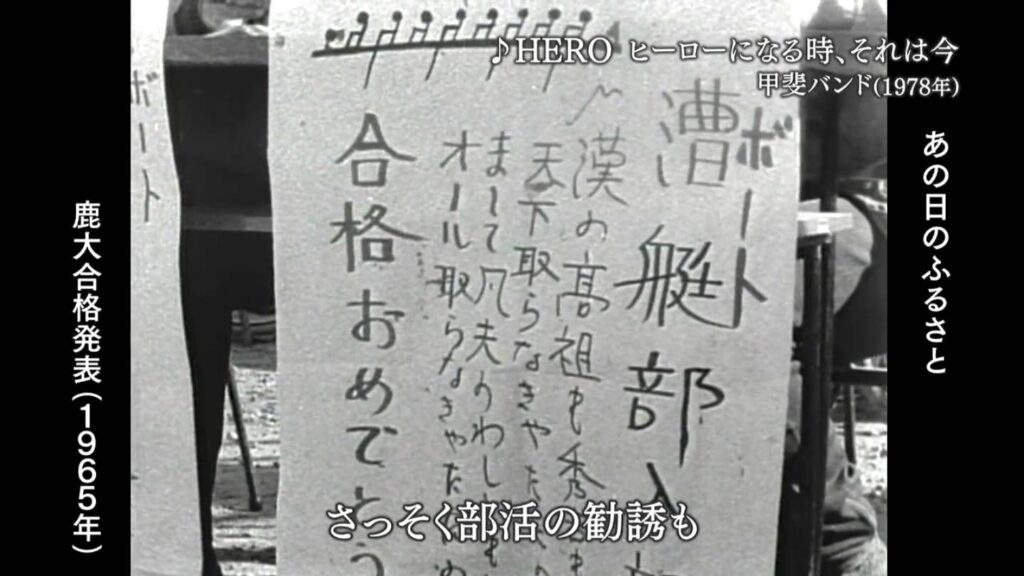 ♪HERO ヒーローになる時、それは今
甲斐バンド(1978年)
あの日のふるさと
ボート
漕艇部入
漢の高祖も秀
天下取らなきゃた
まして凡夫のわし
オール取らなきゃた
合格おめでとう
ボート
鹿大合格発表(1965年)
さっそく部活の勧誘も